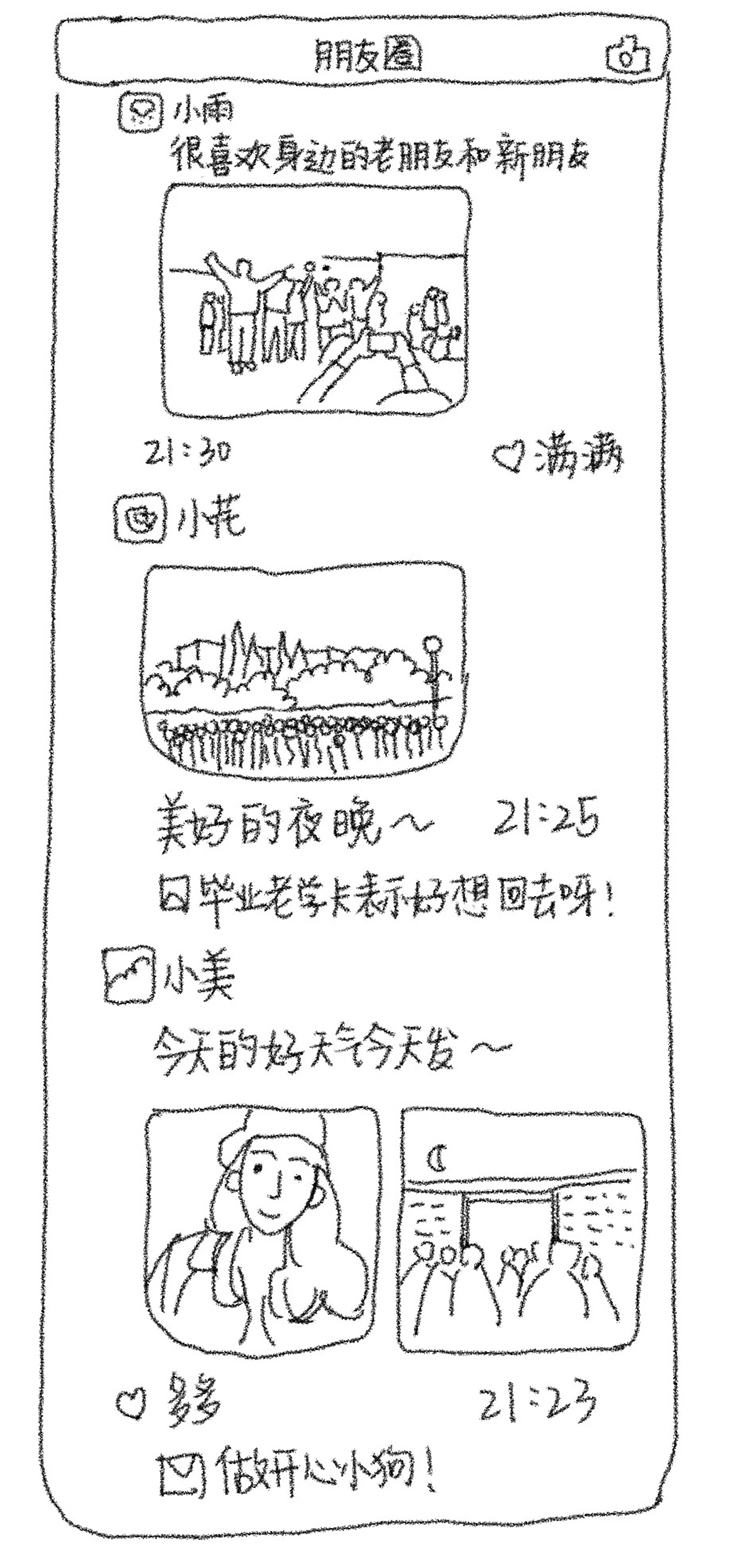 朋友圈
小雨
很喜欢身边的老朋友和新朋友
21:30 ♡满满
小花
美好的夜晚～ 21:25
毕业老学卡表示好想回去呀！
小美
今天的好天气今天发～
♡ 多多 21:23
做开心小狗！